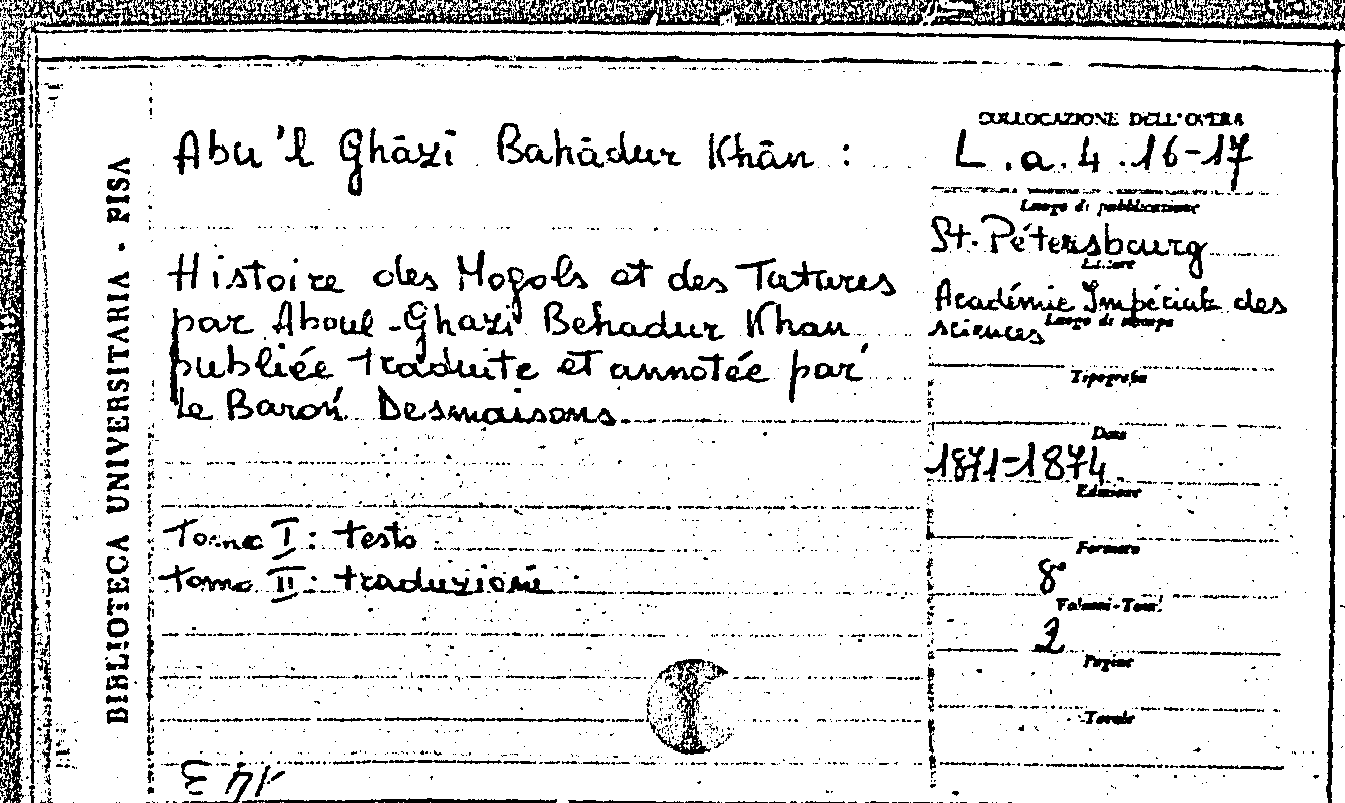 BIBLIOTECA UNIVERSITARIA - PISA
Abu'l Ghāzī Bahādur Khān :
Histoire des Mogols et des Tatares
par Aboul-Ghazi Behadur Khan
publiée traduite et annotée par
le Baron Desmaisons
Tomo I : testo
tomo II : traduzione
COLLOCAZIONE DELL'OPERA
L.a.4.16-17
Luogo di pubblicazione
St. Pétersbourg
Editore
Académie Impériale des
sciences
Luogo di stampa
Tipografia
Data
1871-1874
Edizione
Formato
8°
Volumi-Tomi
2
Pagine
Tavole